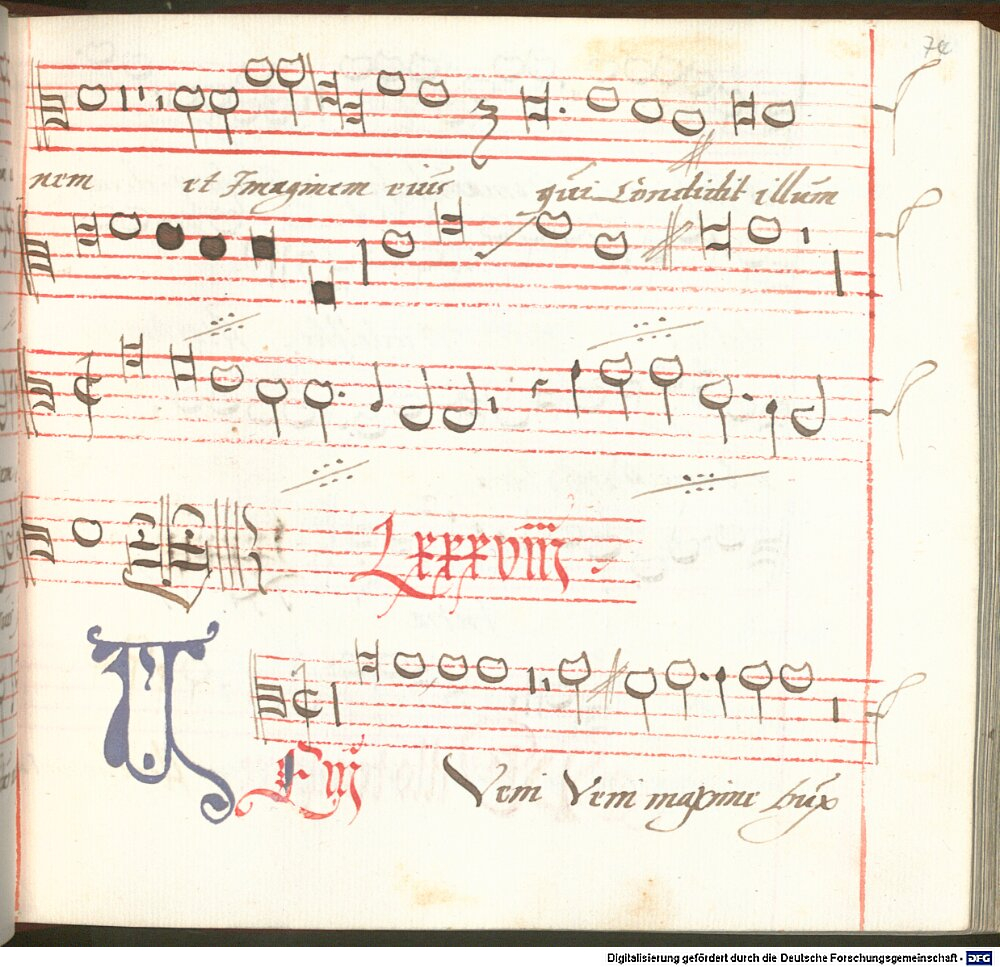 74
nem et Imaginem eiús qúi Condidit illum
Lxxxviiij
VEnj Veni Veni maxime dúx
Digitalisierung gefördert durch die Deutsche Forschungsgemeinschaft - DFG